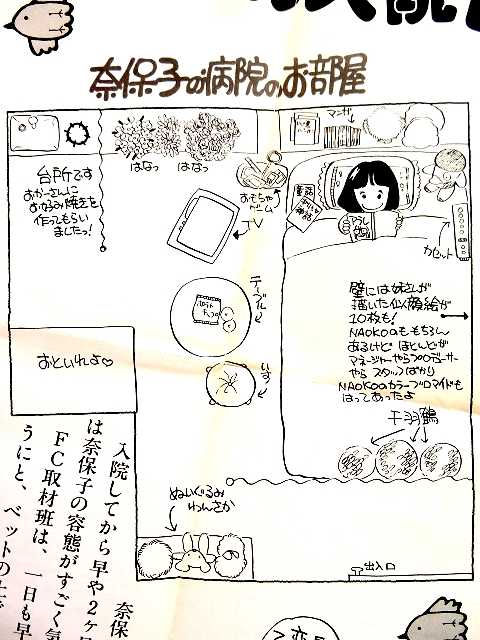 奈保子の病院のお部屋
マンガ
台所です
おかーさんに
おなるみ焼きを
作ってもらい
ましたっ!
はなっ
はなっ
おもちゃ
ゲーム
TV
カセット
テーブル
いす
壁には姉さんが
描いた似顔絵が
10枚も!
NAOKOのももちろん
あるけど ほとんどが
マネージャーやらプロデューサー
やら スタッフばかり
NAOKOのカラーブロマイドも
はってあったよ
おといれよ♡
千羽鶴
ぬいぐるみ
わんさか
出入口
入院してから早や2ヶ月
は奈保子の容態がすごく気
FC取材班は、一日も早
うにと、ベットの上で
奈保